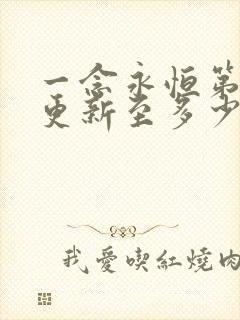 一念永恒第
更新至多少
我愛喫紅燒肉